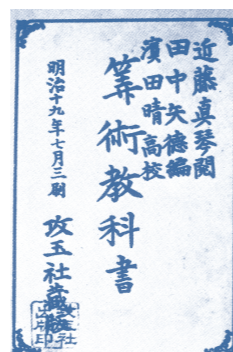 近藤真琴閲
田中矢德編
濱田晴高校
筭術教科書
明治十九年七月三刷
攻玉社藏版